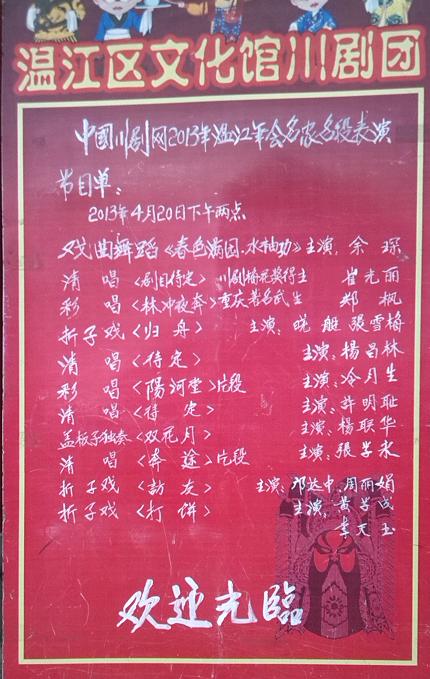 温江区文化馆川剧团
中國川剧网2013年温江年会名家名段表演
节目单：
2013年4月20日下午两点
戏曲舞蹈《春色满园.水袖功》主演，余琛
清 唱〈剧目待定〉川剧梅花奖得主 崔光丽
彩 唱〈林冲夜奔〉重庆著名武生 郑枫
折子戏〈归舟〉 主演：晓艇 張雪梅
清 唱〈待定〉 主演：楊昌林
彩 唱〈陽河堂〉片段 主演：冷月生
清 唱〈待定〉 主演：許明耻
盖板子独奏〈双花月〉 主演：楊联华
清 唱〈奔途〉片段 主演：張学永
折子戏〈訪友〉 主演：邓达中、周丽娟
折子戏〈打饼〉 主演：黄学成
李天玉
欢迎光臨